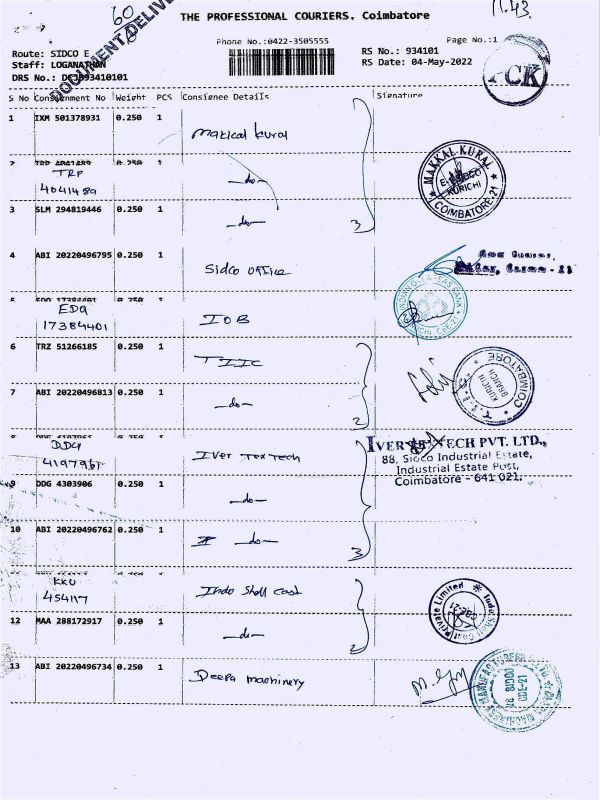 60
11.43
THE PROFESSIONAL COURIERS. Coimbatore
DOCUMENT DELIVE
Phone No.:0422-3505555
Page No.:1
Route: SIDCO E
RS No.: 934101
Staff: LOGANATHAN
RS Date: 04-May-2022
DRS No.: DCJB93410101
PCK
S No Consignment No Weight PCS Consignee Details Signature
1 IXM 501378931 0.250 1 Makkal Kural
TRP 4041489 -do-
3 SLM 294819446 0.250 1 -do- 3
MAKKAL KURAL
KURICHI
COIMBATORE-21
4 ABI 20220496795 0.250 1 Sidco Office
EDQ 17384401 IOB
INDIAN OVERSEAS BANK
6 TRZ 51266185 0.250 1 TIIC
7 ABI 20220496813 0.250 1 -do- 2
COIMBATORE
KURICHI
BRANCH
DDG 4197961 Iver Tex Tech
9 DDG 4303906 0.250 1 -do-
10 ABI 20220496762 0.250 1 -do- 3
TECH PVT. LTD.,
88, Sidco Industrial Estate,
Industrial Estate Post,
Coimbatore - 641 021.
KKU 454117 Indo Shell Cast
12 MAA 288172917 0.250 1 -do- 2
Indo Shell Cast Private Limited
CBE-21
13 ABI 20220496734 0.250 1 Deepa machinery
SIDCO
CBE-21